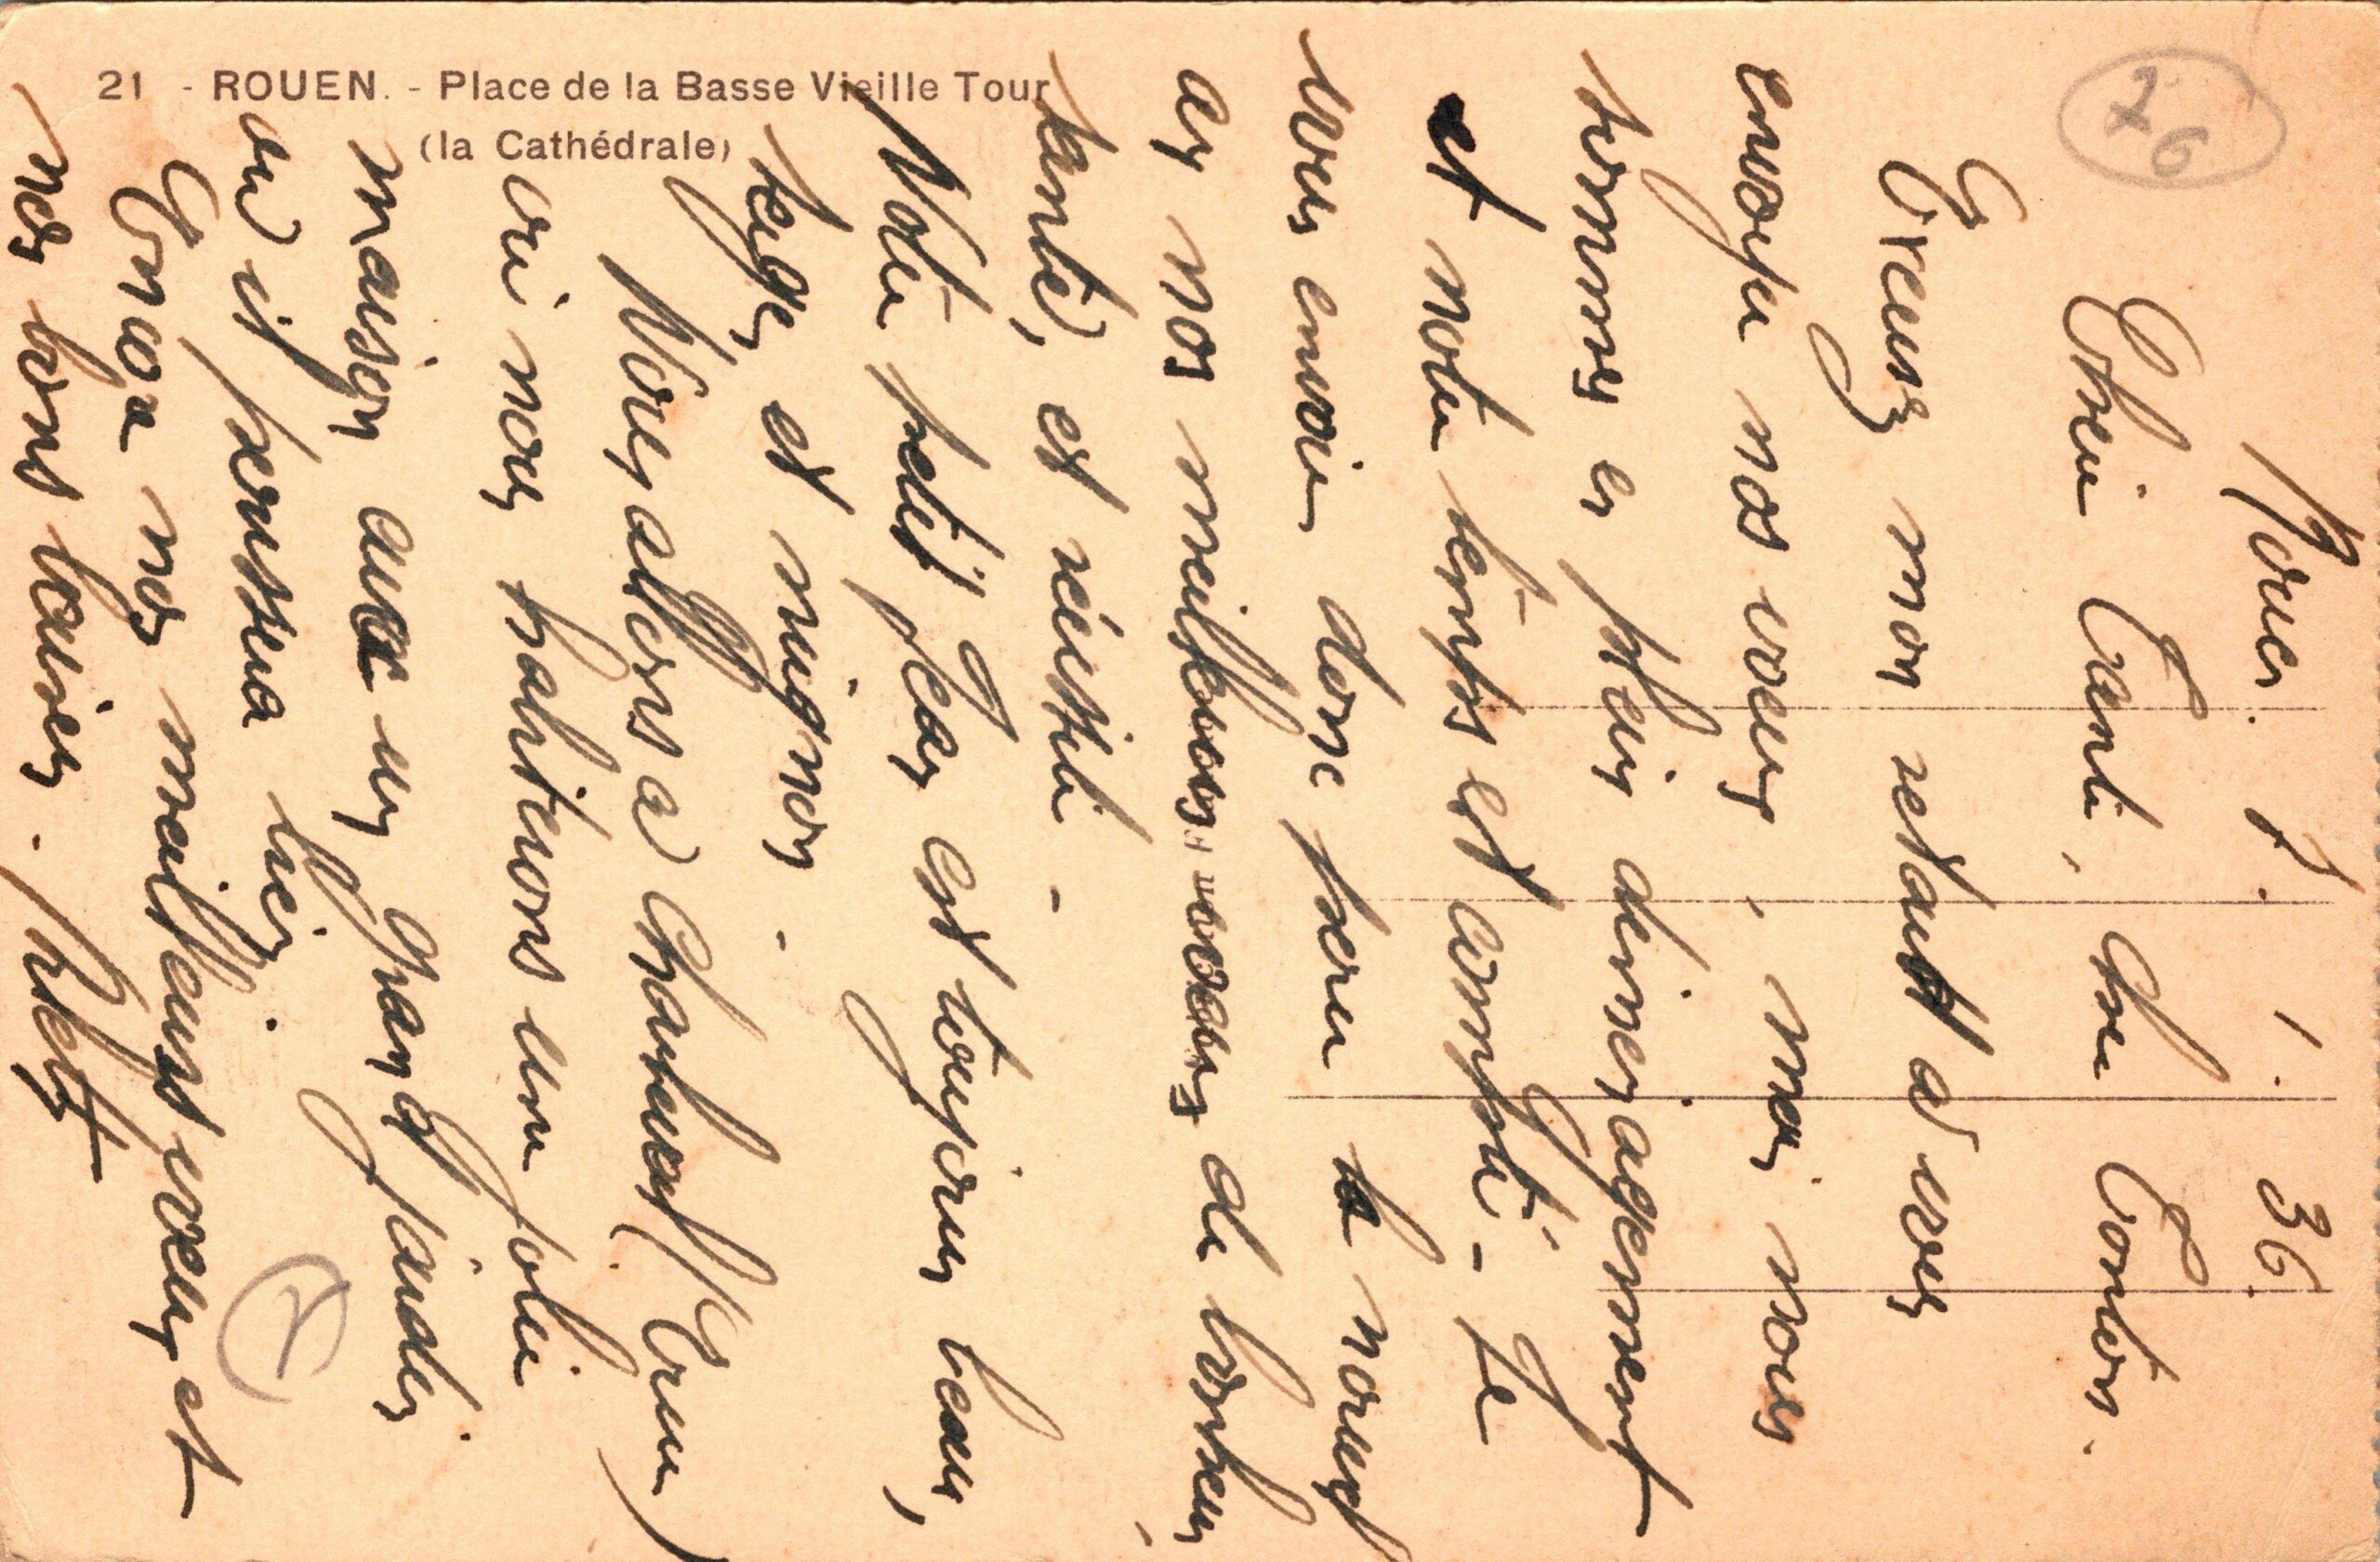 21 - ROUEN. - Place de la Basse Vieille Tour
(la Cathédrale)
76
Rouen. 1. 1. 36.
Chère Tante, cher Tonton.
Excusez mon retard à vous
envoyer nos vœux, mais nous
sommes en plein déménagement
et notre temps est compté - Je
vous envoie donc pour le nouvel
an nos meilleurs vœux de bonheur,
santé, et réussite -
Notre petit Jean est toujours beau,
sage, et mignon -
Nous allons à Chanteraf (Eure)
où nous habiterons une jolie
maison avec un grand jardin
où il poussera bien.
Encore nos meilleurs vœux, et
nos bons baisers.